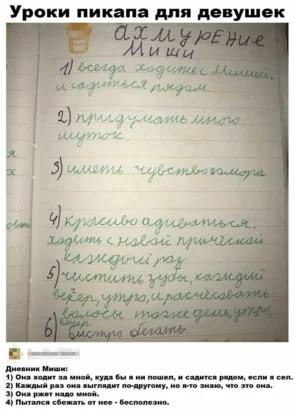 Уроки пикапа для девушек
ахмурение
Миши
1) всегда ходить с Мишей,
и садиться рядом.
2) придумать много
шуток.
3) иметь чувство юмора
4) красиво адиваться,
ходить с новой причёской
каждый раз
5) чистить зубы, каждый
вечер, утро, и расчёсовать
волосы тоже день, утро,
вечер.
6) быстро бегать.
Дневник Миши:
1) Она ходит за мной, куда бы я ни пошел, и садится рядом, если я сел.
2) Каждый раз она выглядит по-другому, но я-то знаю, что это она.
3) Она ржет надо мной.
4) Пытался сбежать от нее - бесполезно.